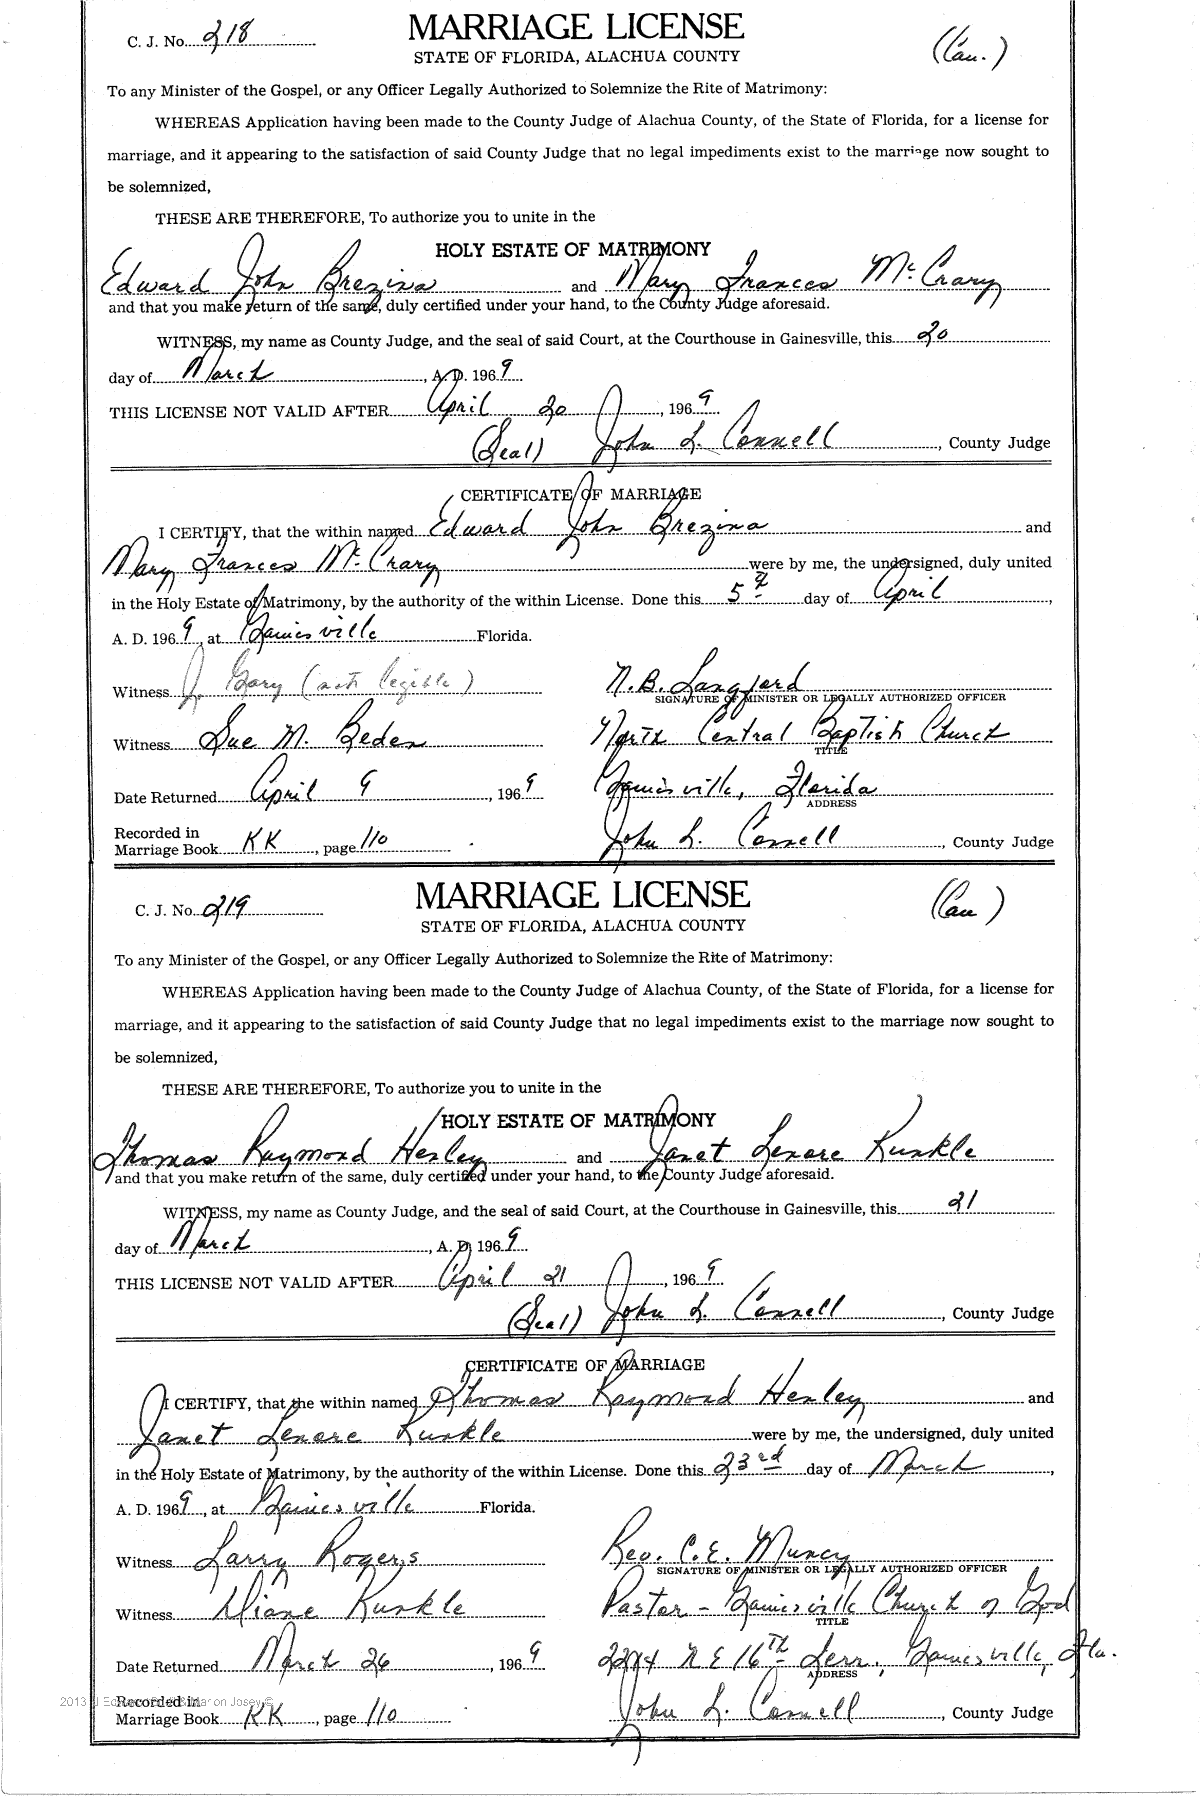 MARRIAGE LICENSE
C. J. No. 218
STATE OF FLORIDA, ALACHUA COUNTY
(Cau.)
To any Minister of the Gospel, or any Officer Legally Authorized to Solemnize the Rite of Matrimony:
WHEREAS Application having been made to the County Judge of Alachua County, of the State of Florida, for a license for
marriage, and it appearing to the satisfaction of said County Judge that no legal impediments exist to the marriage now sought to
be solemnized,
THESE ARE THEREFORE, To authorize you to unite in the
HOLY ESTATE OF MATRIMONY
Edward John Brezina and Mary Frances McCrary
and that you make return of the same, duly certified under your hand, to the County Judge aforesaid.
WITNESS, my name as County Judge, and the seal of said Court, at the Courthouse in Gainesville, this 20
day of March, A. D. 1969
THIS LICENSE NOT VALID AFTER April 20, 1969
(Seal) John L. Connell, County Judge
CERTIFICATE OF MARRIAGE
I CERTIFY, that the within named Edward John Brezina and
Mary Frances McCrary were by me, the undersigned, duly united
in the Holy Estate of Matrimony, by the authority of the within License. Done this 5th day of April,
A. D. 1969, at Gainesville Florida.
Witness J. Gary (not legible) N. B. Langford
SIGNATURE OF MINISTER OR LEGALLY AUTHORIZED OFFICER
Witness Sue M. Beden North Central Baptist Church
TITLE
Date Returned April 9, 1969 Gainesville, Florida
ADDRESS
Recorded in
Marriage Book KK, page 110 John L. Connell, County Judge
MARRIAGE LICENSE
C. J. No. 219 (Cau)
STATE OF FLORIDA, ALACHUA COUNTY
To any Minister of the Gospel, or any Officer Legally Authorized to Solemnize the Rite of Matrimony:
WHEREAS Application having been made to the County Judge of Alachua County, of the State of Florida, for a license for
marriage, and it appearing to the satisfaction of said County Judge that no legal impediments exist to the marriage now sought to
be solemnized,
THESE ARE THEREFORE, To authorize you to unite in the
HOLY ESTATE OF MATRIMONY
Thomas Raymond Henley and Janet Lenore Kunkle
and that you make return of the same, duly certified under your hand, to the County Judge aforesaid.
WITNESS, my name as County Judge, and the seal of said Court, at the Courthouse in Gainesville, this 21
day of March, A. D. 1969
THIS LICENSE NOT VALID AFTER April 21, 1969
(Seal) John L. Connell, County Judge
CERTIFICATE OF MARRIAGE
I CERTIFY, that the within named Thomas Raymond Henley and
Janet Lenore Kunkle were by me, the undersigned, duly united
in the Holy Estate of Matrimony, by the authority of the within License. Done this 23rd day of March,
A. D. 1969, at Gainesville Florida.
Witness Larry Rogers Rev. C. E. Muncy
SIGNATURE OF MINISTER OR LEGALLY AUTHORIZED OFFICER
Witness Diane Kunkle Pastor - Gainesville Church of God
TITLE
Date Returned March 26, 1969 N E 16th Terr, Gainesville, Fla.
ADDRESS
2013 Josey ©
Recorded in
Marriage Book KK, page 110 John L. Connell, County Judge